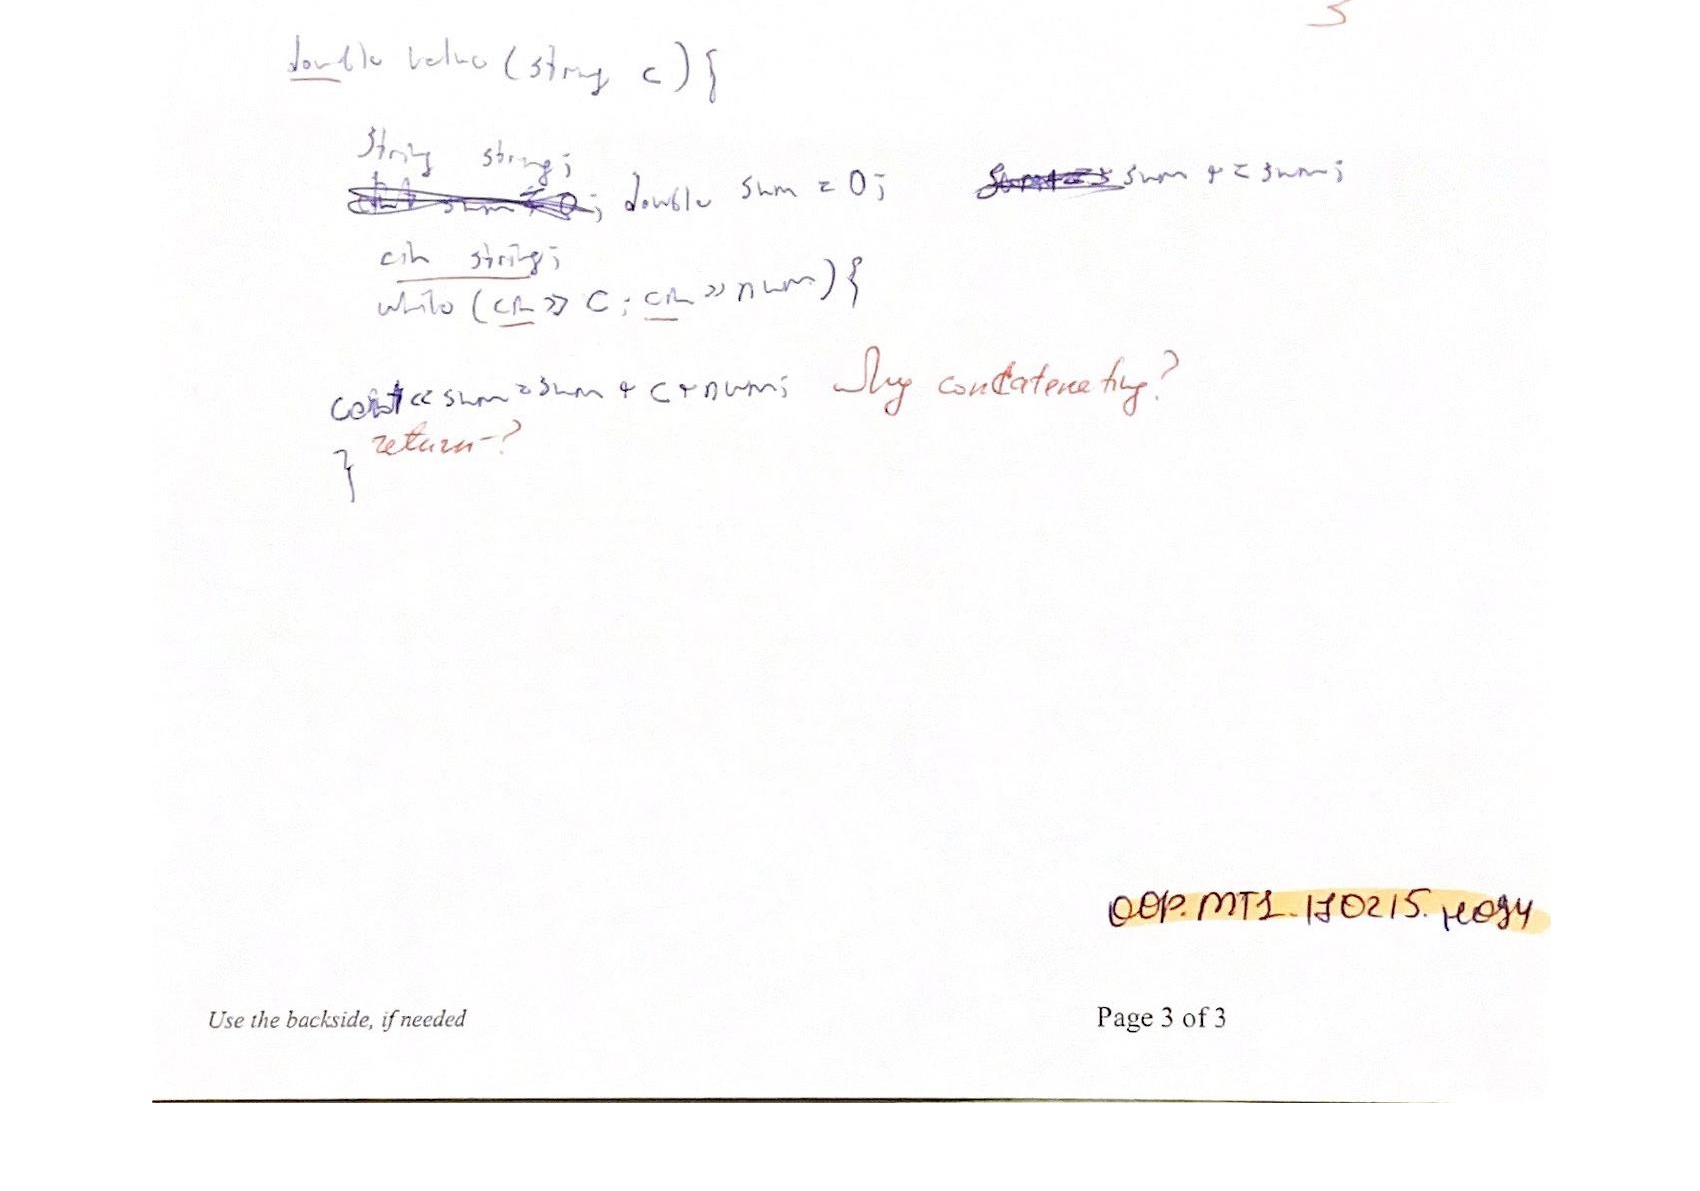 5
double value (string c) {
String string;
double sum = 0; sum += sum;
cin string;
while (cin >> c ; cin >> num) {
cout << sum = sum + c + num; Why concatenating?
return - ?
}
OOP. MT1. 170215.
Use the backside, if needed Page 3 of 3